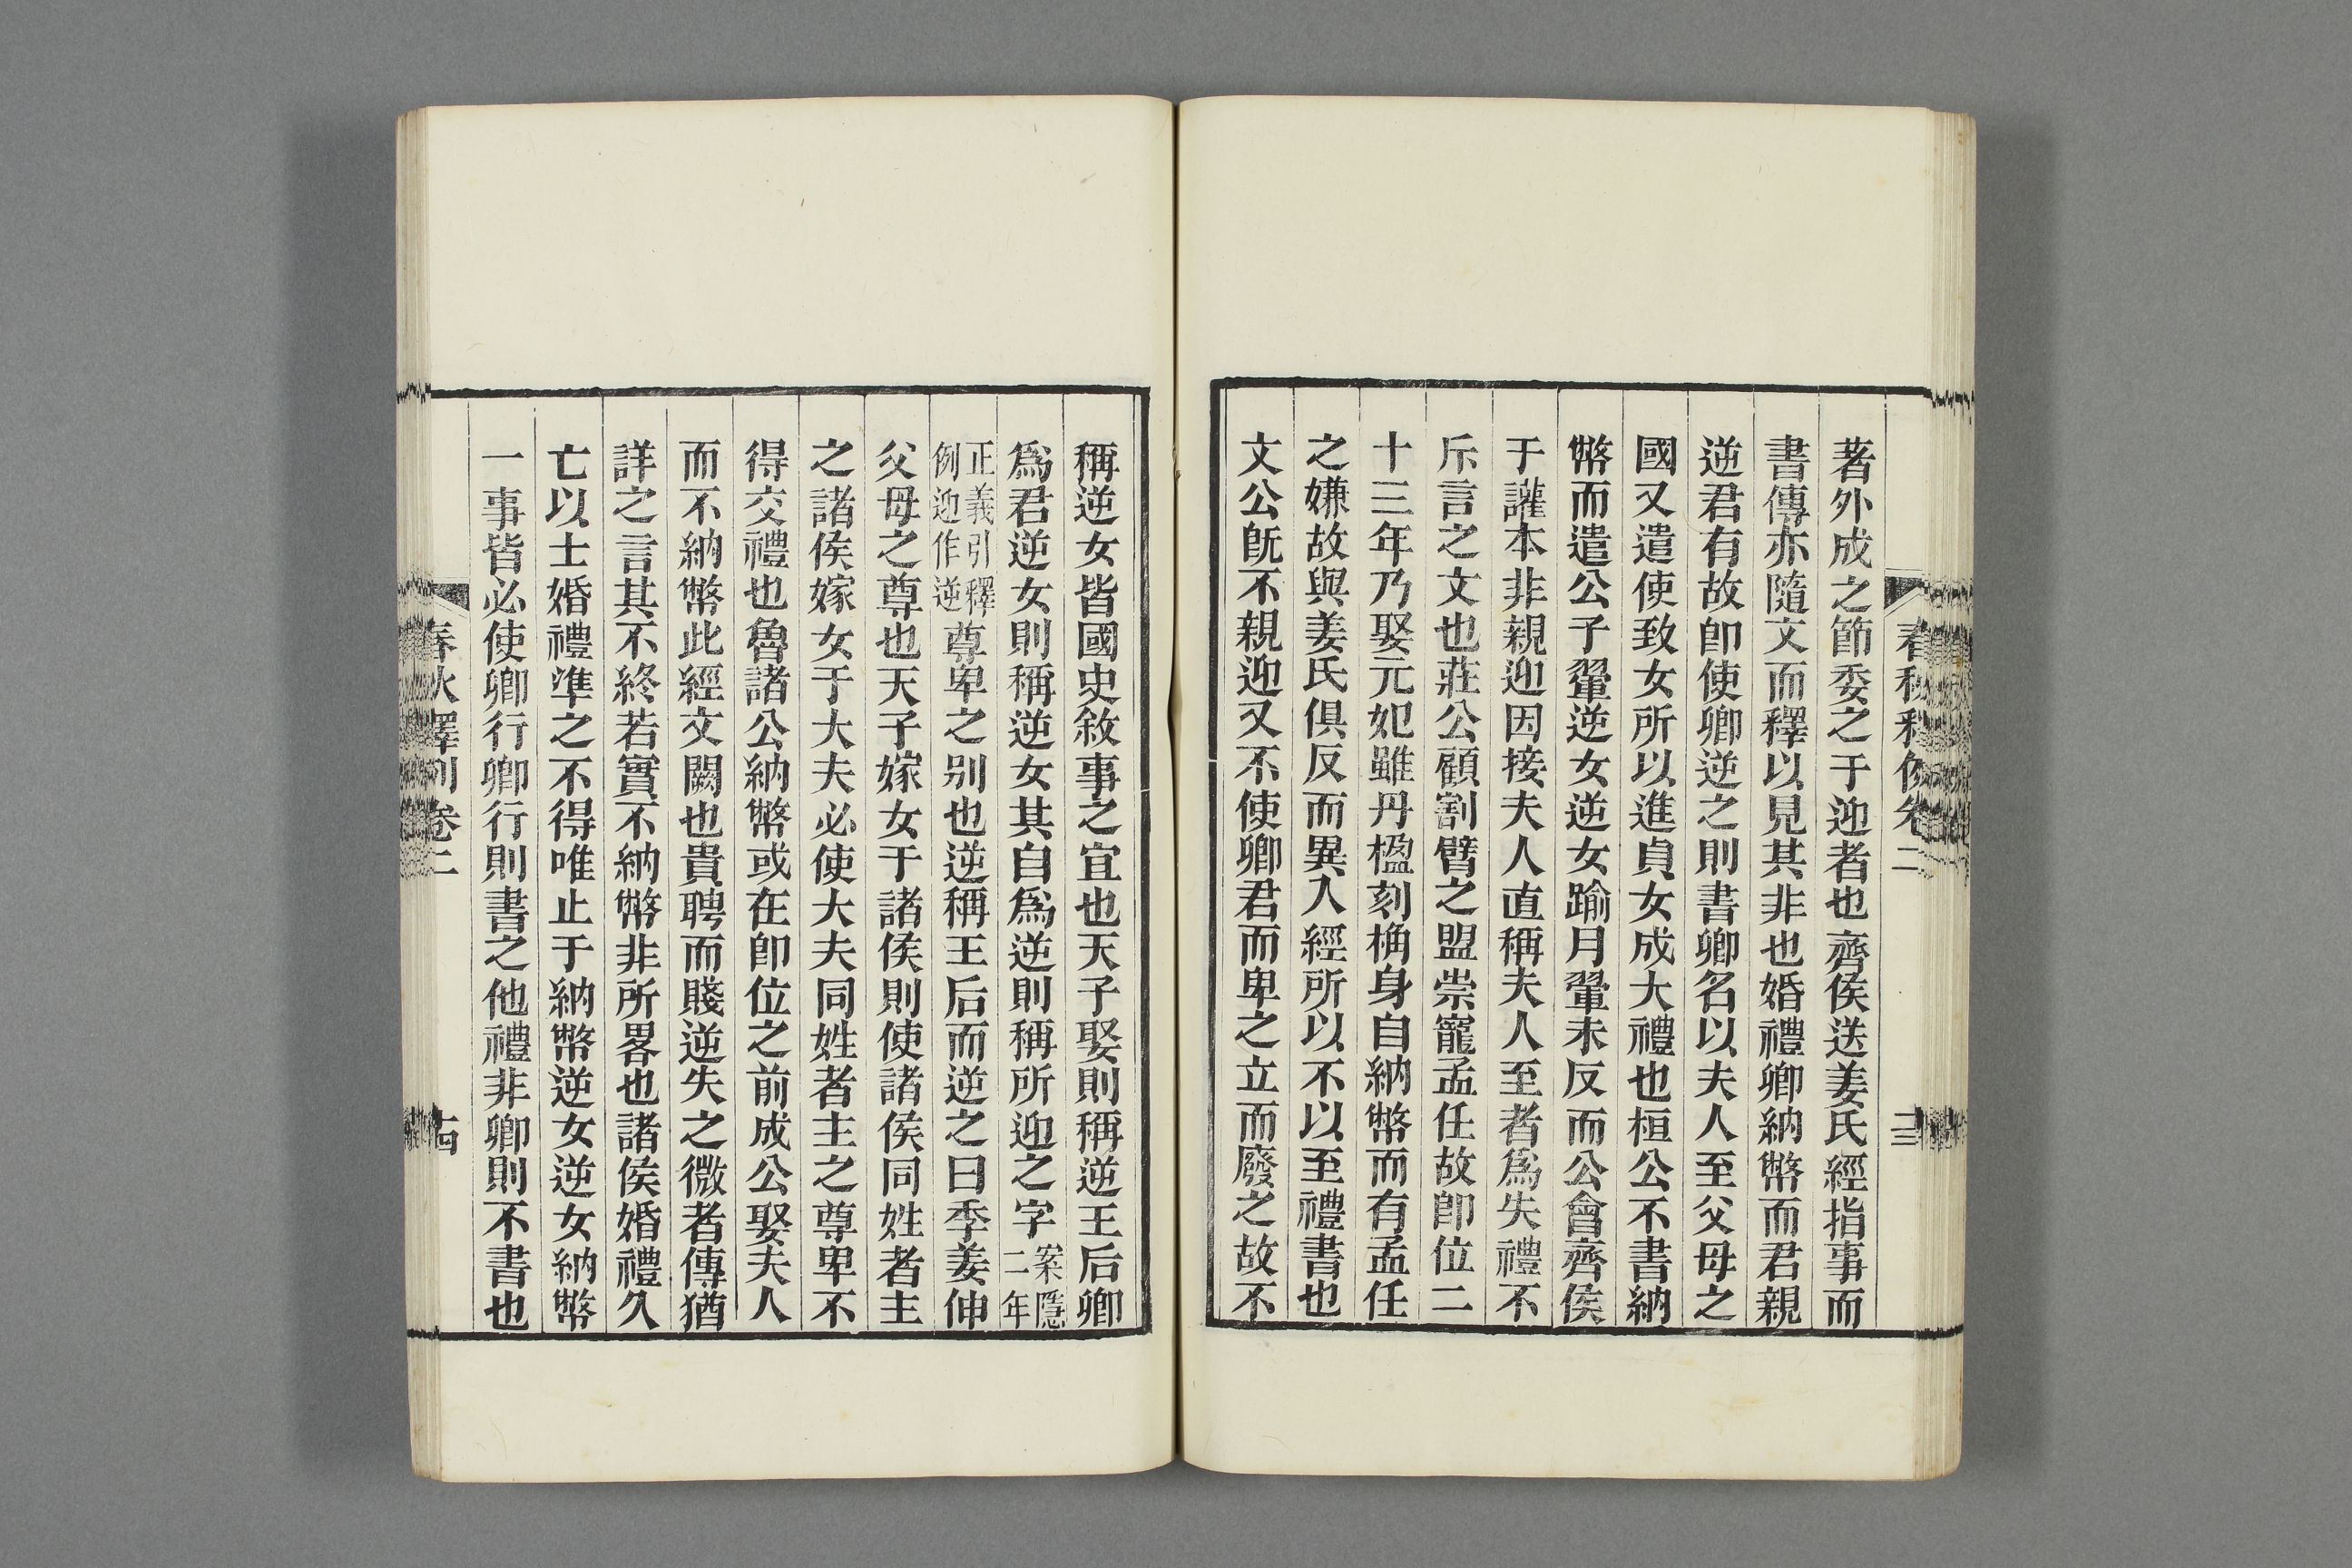 春秋釋例卷二
十三
著外成之節委之于迎者也齊侯送姜氏經指事而
書傳亦隨文而釋以見其非也婚禮卿納幣而君親
逆君有故卽使卿逆之則書卿名以夫人至父母之
國又遣使致女所以進貞女成大禮也桓公不書納
幣而遣公子翬逆女逆女踰月翬未反而公會齊侯
于讙本非親迎因接夫人直稱夫人至者爲失禮不
斥言之文也莊公顧割臂之盟崇寵孟任故卽位二
十三年乃娶元妃雖丹楹刻桷身自納幣而有孟任
之嫌故與姜氏俱反而異入經所以不以至禮書也
文公旣不親迎又不使卿君而卑之立而廢之故不
稱逆女皆國史敘事之宜也天子娶則稱逆王后卿
爲君逆女則稱逆女其自爲逆則稱所迎之字案隱二年
正義引釋例迎作逆尊卑之別也逆稱王后而逆之曰季姜伸
父母之尊也天子嫁女于諸侯則使諸侯同姓者主
之諸侯嫁女于大夫必使大夫同姓者主之尊卑不
得交禮也魯諸公納幣或在卽位之前成公娶夫人
而不納幣此經文闕也貴聘而賤逆失之微者傳猶
詳之言其不終若實不納幣非所畧也諸侯婚禮久
亡以士婚禮準之不得唯止于納幣逆女逆女納幣
一事皆必使卿行卿行則書之他禮非卿則不書也
春秋釋例卷二
十四